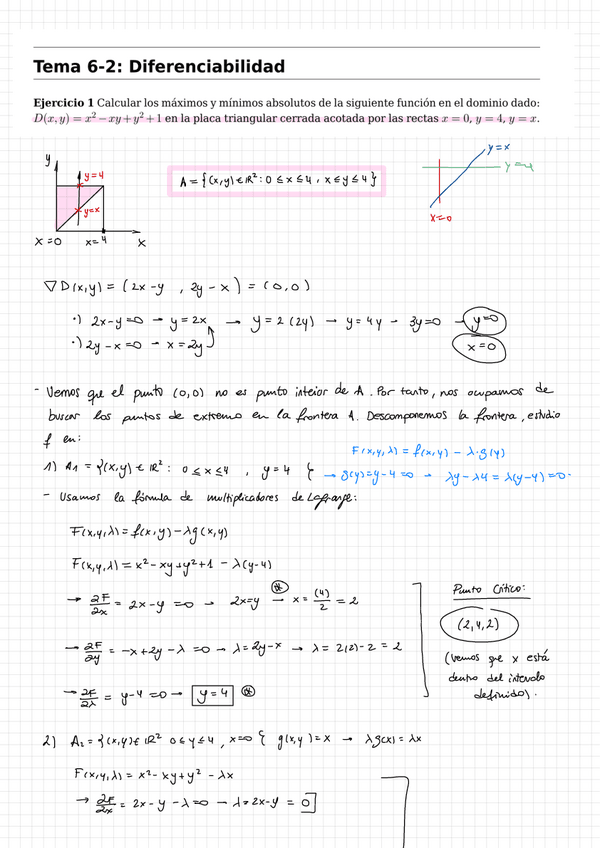 Tema 6-2: Diferenciabilidad
Ejercicio 1 Calcular los máximos y mínimos absolutos de la siguiente función en el dominio dado:
D(x, y) = x² − xy + y² + 1 en la placa triangular cerrada acotada por las rectas x = 0, y = 4, y = x.
y
y=4
y=x
x=0
x=4
x
A = {(x,y) ∈ ℝ² : 0 ≤ x ≤ 4 , x ≤ y ≤ 4}
y=x
y=4
x=0
∇D(x,y) = (2x-y , 2y-x) = (0,0)
·) 2x-y=0 → y=2x → y=2(2y) → y=4y - 3y=0 → y=0
·) 2y-x=0 → x=2y
x=0
- Vemos que el punto (0,0) no es punto inteior de A. Por tanto, nos ocupamos de
buscar los puntos de extremo en la frontera A. Descomponemos la frontera, estudio
f en:
F(x,y,λ) = f(x,y) - λ·g(y)
1) A₁ = {(x,y) ∈ ℝ² : 0 ≤ x ≤ 4 , y=4 } → g(y)=y-4=0 → λy-λ4 = λ(y-4)=0
- Usamos la fórmula de multiplicadores de Lagrange:
F(x,y,λ) = f(x,y) - λg(x,y)
F(x,y,λ) = x²-xy+y²+1 - λ(y-4)
→ ∂F/∂x = 2x-y=0 → 2x=y → x = (4)/2 = 2
→ ∂F/∂y = -x+2y-λ=0 → λ=2y-x → λ = 2(2)-2 = 2
→ ∂F/∂λ = y-4=0 → y=4
Punto Crítico:
(2,4,2)
(vemos que x está
dentro del intervalo
definido).
2) A₂ = {(x,y) ∈ ℝ² 0 ≤ y ≤ 4 , x=0 { g(x,y)=x → λg(x) = λx
F(x,y,λ) = x²-xy+y² - λx
→ ∂F/∂x = 2x-y-λ=0 → λ=2x-y = 0